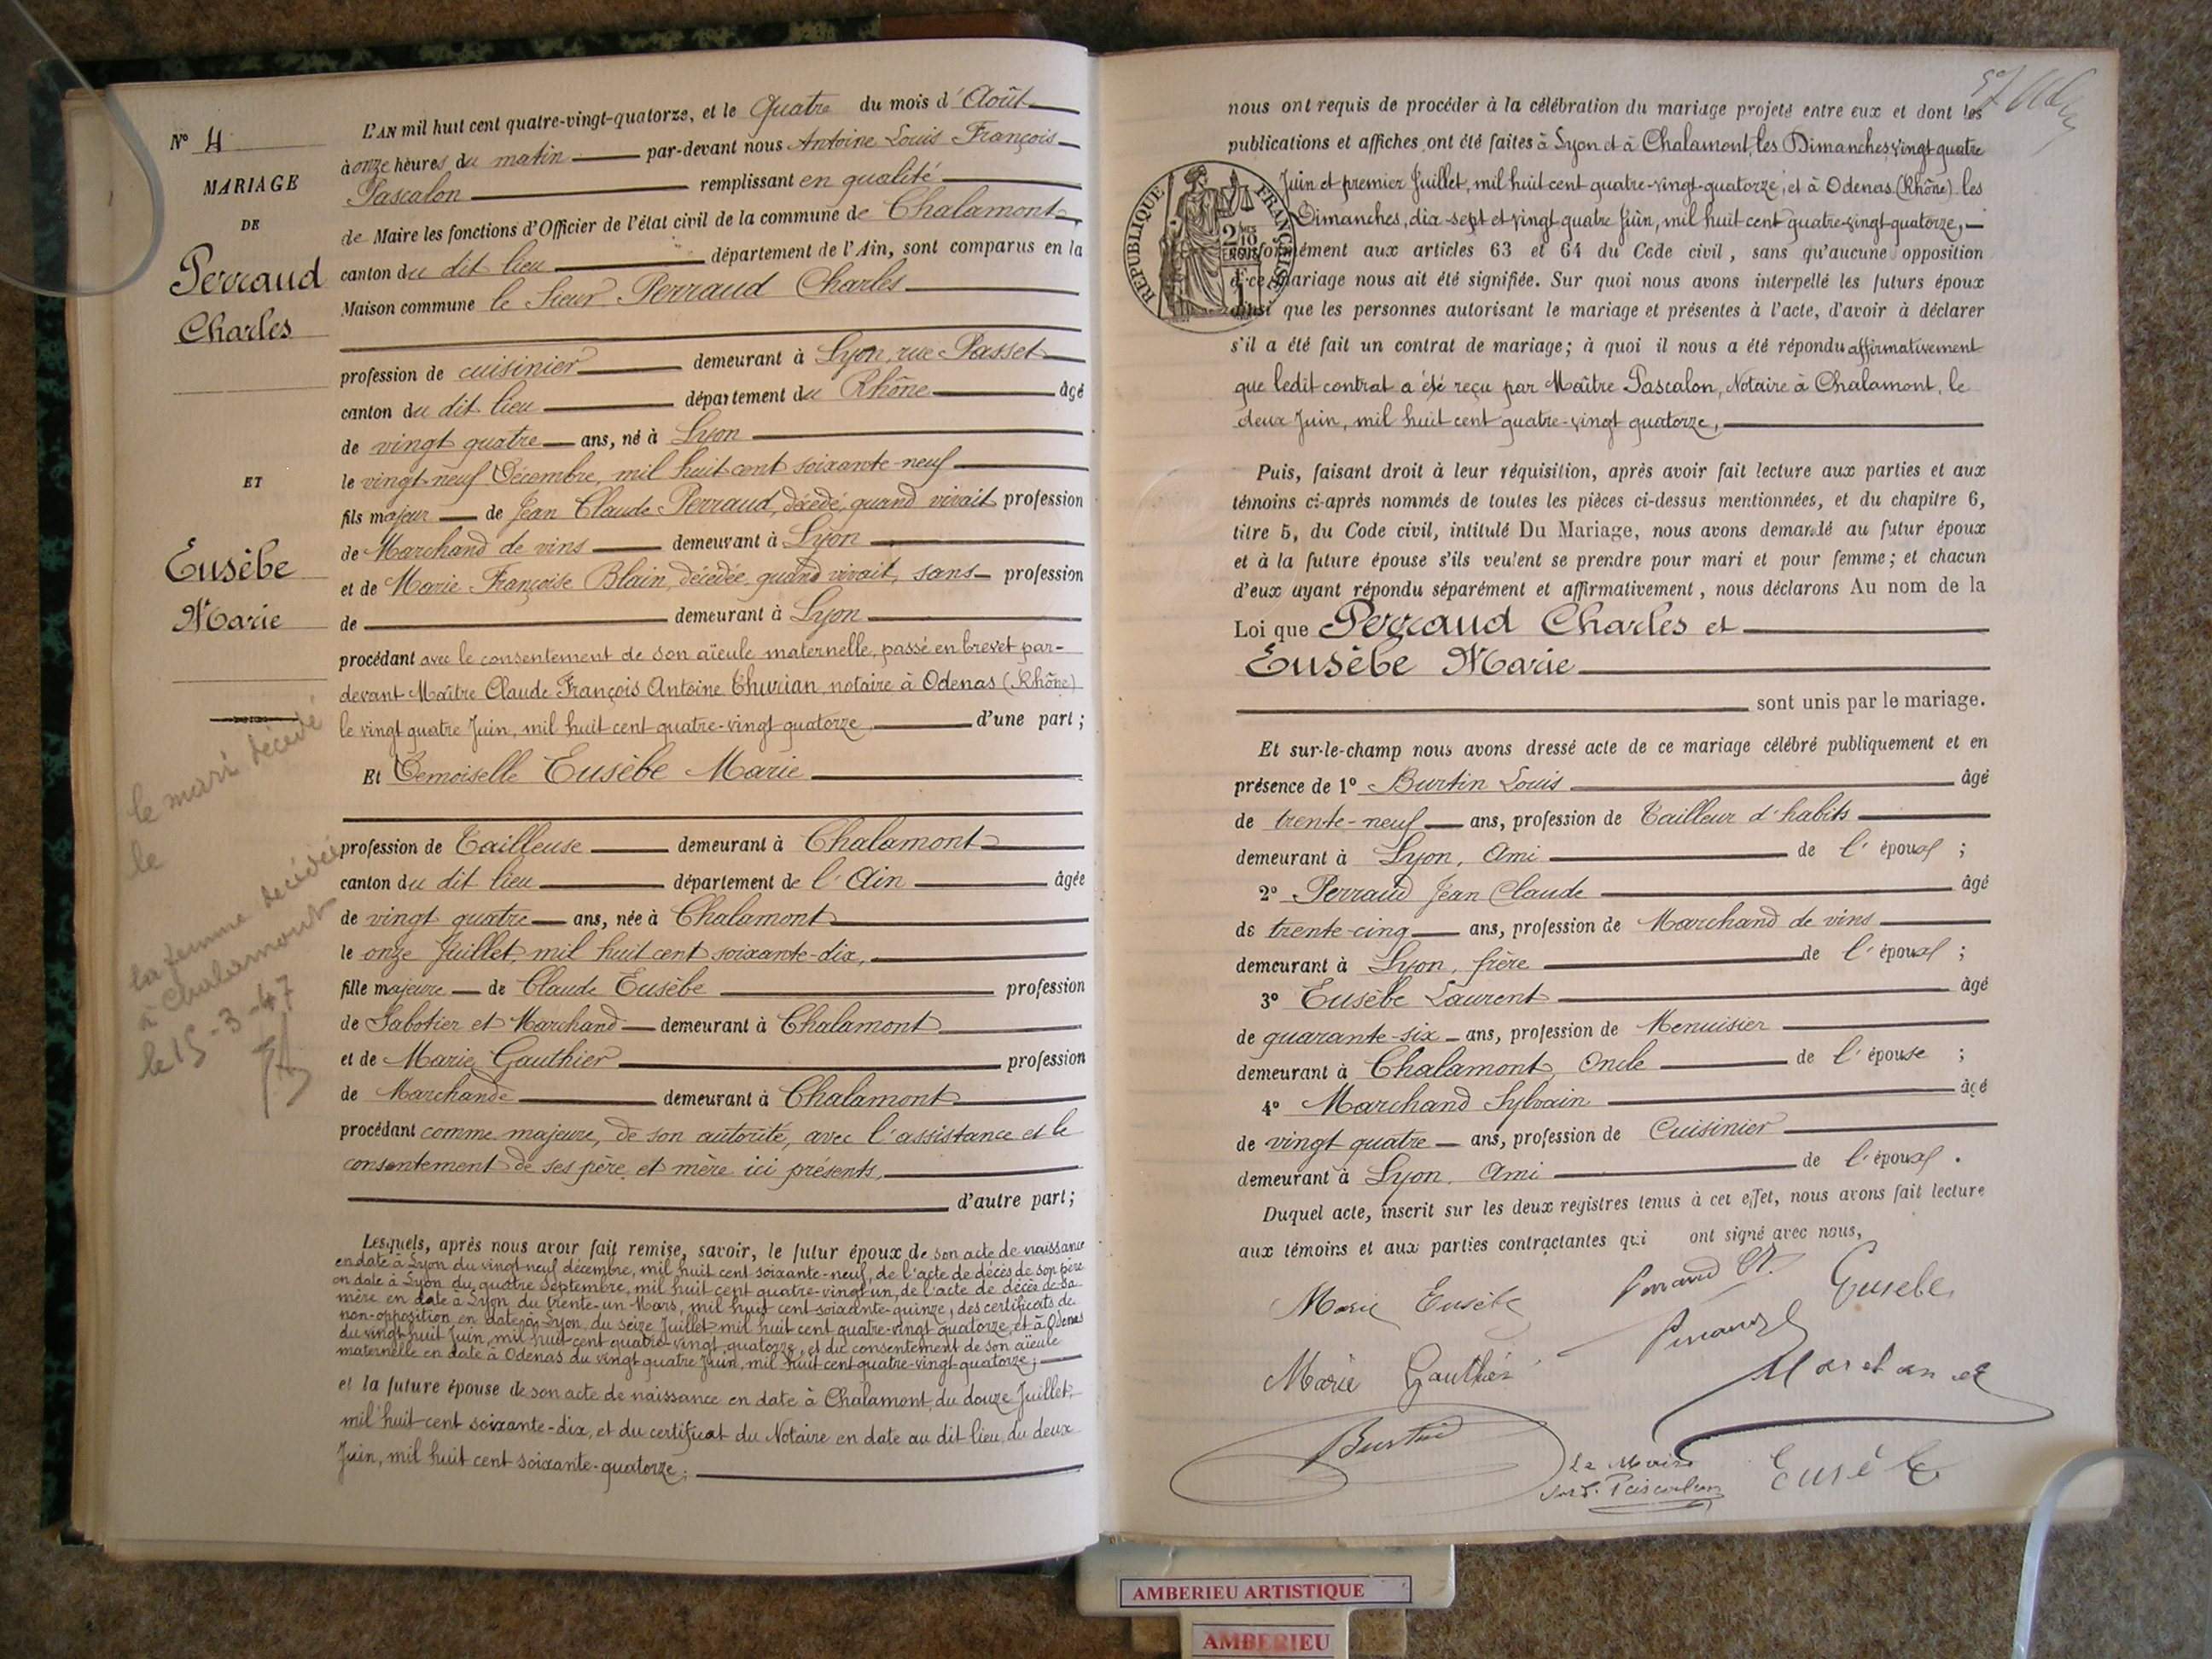 N° 4
MARIAGE
DE
Perraud
Charles
ET
Eusèbe
Marie
le mari décédé
le
la femme décédée
à Chalamont
le 15-3-47
L'AN mil huit cent quatre-vingt-quatorze, et le Quatre du mois d'Août
à onze heures du matin par-devant nous Antoine Louis François
Pascalon remplissant en qualité
de Maire les fonctions d'Officier de l'état civil de la commune de Chalamont
canton du dit lieu département de l'Ain, sont comparus en la
Maison commune le Sieur Perraud Charles
profession de cuisinier demeurant à Lyon, rue Passet
canton du dit lieu département du Rhône âgé
de vingt quatre ans, né à Lyon
le vingt-neuf Décembre, mil huit cent soixante-neuf
fils majeur de Jean Claude Perraud, décédé, quand vivait profession
de Marchand de vins demeurant à Lyon
et de Marie Françoise Blain, décédée, quand vivait, sans profession
de demeurant à Lyon
procédant avec le consentement de son aïeule maternelle, passé en brevet par-
devant Maître Claude François Antoine Thurian, notaire à Odenas (Rhône)
le vingt quatre Juin, mil huit cent quatre-vingt quatorze, d'une part;
Et Demoiselle Eusèbe Marie
profession de Tailleuse demeurant à Chalamont
canton du dit lieu département de l'Ain âgée
de vingt quatre ans, née à Chalamont
le onze Juillet, mil huit cent soixante-dix,
fille majeure de Claude Eusèbe profession
de Sabotier et Marchand demeurant à Chalamont
et de Marie Gauthier profession
de Marchande demeurant à Chalamont
procédant comme majeure, de son autorité, avec l'assistance et le
consentement de ses père et mère ici présents,
d'autre part;
Lesquels, après nous avoir fait remise, savoir, le futur époux de son acte de naissance
en date à Lyon du vingt-neuf décembre, mil huit cent soixante-neuf, de l'acte de décès de son père
en date à Lyon du quatre Septembre, mil huit cent quatre-vingt un, de l'acte de décès de sa
mère en date à Lyon du trente-un Mars, mil huit cent soixante-quinze, des certificats de
non-opposition en date à Lyon du seize Juillet mil huit cent quatre-vingt quatorze, et à Odenas
du vingt huit Juin, mil huit cent quatre-vingt quatorze, et du consentement de son aïeule
maternelle en date à Odenas du vingt quatre Juin, mil huit cent quatre-vingt-quatorze;
et la future épouse de son acte de naissance en date à Chalamont, du douze Juillet,
mil huit cent soixante-dix, et du certificat du Notaire en date au dit lieu, du deux
Juin, mil huit cent soixante-quatorze;
nous ont requis de procéder à la célébration du mariage projeté entre eux et dont les
publications et affiches ont été faites à Lyon et à Chalamont, les Dimanches vingt quatre
Juin et premier Juillet, mil huit cent quatre-vingt-quatorze, et à Odenas (Rhône) les
Dimanches, dix-sept et vingt quatre Juin, mil huit cent quatre-vingt-quatorze,
RÉPUBLIQUE FRANÇAISE
conformément aux articles 63 et 64 du Code civil, sans qu'aucune opposition
à ce mariage nous ait été signifiée. Sur quoi nous avons interpellé les futurs époux
ainsi que les personnes autorisant le mariage et présentes à l'acte, d'avoir à déclarer
s'il a été fait un contrat de mariage; à quoi il nous a été répondu affirmativement
que ledit contrat a été reçu par Maître Pascalon, Notaire à Chalamont, le
deux Juin, mil huit cent quatre-vingt quatorze,
Puis, faisant droit à leur réquisition, après avoir fait lecture aux parties et aux
témoins ci-après nommés de toutes les pièces ci-dessus mentionnées, et du chapitre 6,
titre 5, du Code civil, intitulé Du Mariage, nous avons demandé au futur époux
et à la future épouse s'ils veulent se prendre pour mari et pour femme; et chacun
d'eux ayant répondu séparément et affirmativement, nous déclarons Au nom de la
Loi que Perraud Charles et
Eusèbe Marie
sont unis par le mariage.
Et sur-le-champ nous avons dressé acte de ce mariage célébré publiquement et en
présence de 1° Burtin Louis âgé
de trente-neuf ans, profession de Tailleur d'habits
demeurant à Lyon, Ami de l'époux;
2° Perraud Jean Claude âgé
de trente-cinq ans, profession de Marchand de vins
demeurant à Lyon, frère de l'époux;
3° Eusèbe Laurent âgé
de quarante-six ans, profession de Menuisier
demeurant à Chalamont, Oncle de l'épouse;
4° Marchand Sylvain âgé
de vingt quatre ans, profession de Cuisinier
demeurant à Lyon, Ami de l'époux.
Duquel acte, inscrit sur les deux registres tenus à cet effet, nous avons fait lecture
aux témoins et aux parties contractantes qui ont signé avec nous,
Marie Eusèbe Perraud Ch. Eusebe
Perraud
Marie Gauthier Marchand
Burtin Le Maire Eusèbe
Pascalon
AMBERIEU ARTISTIQUE
AMBERIEU